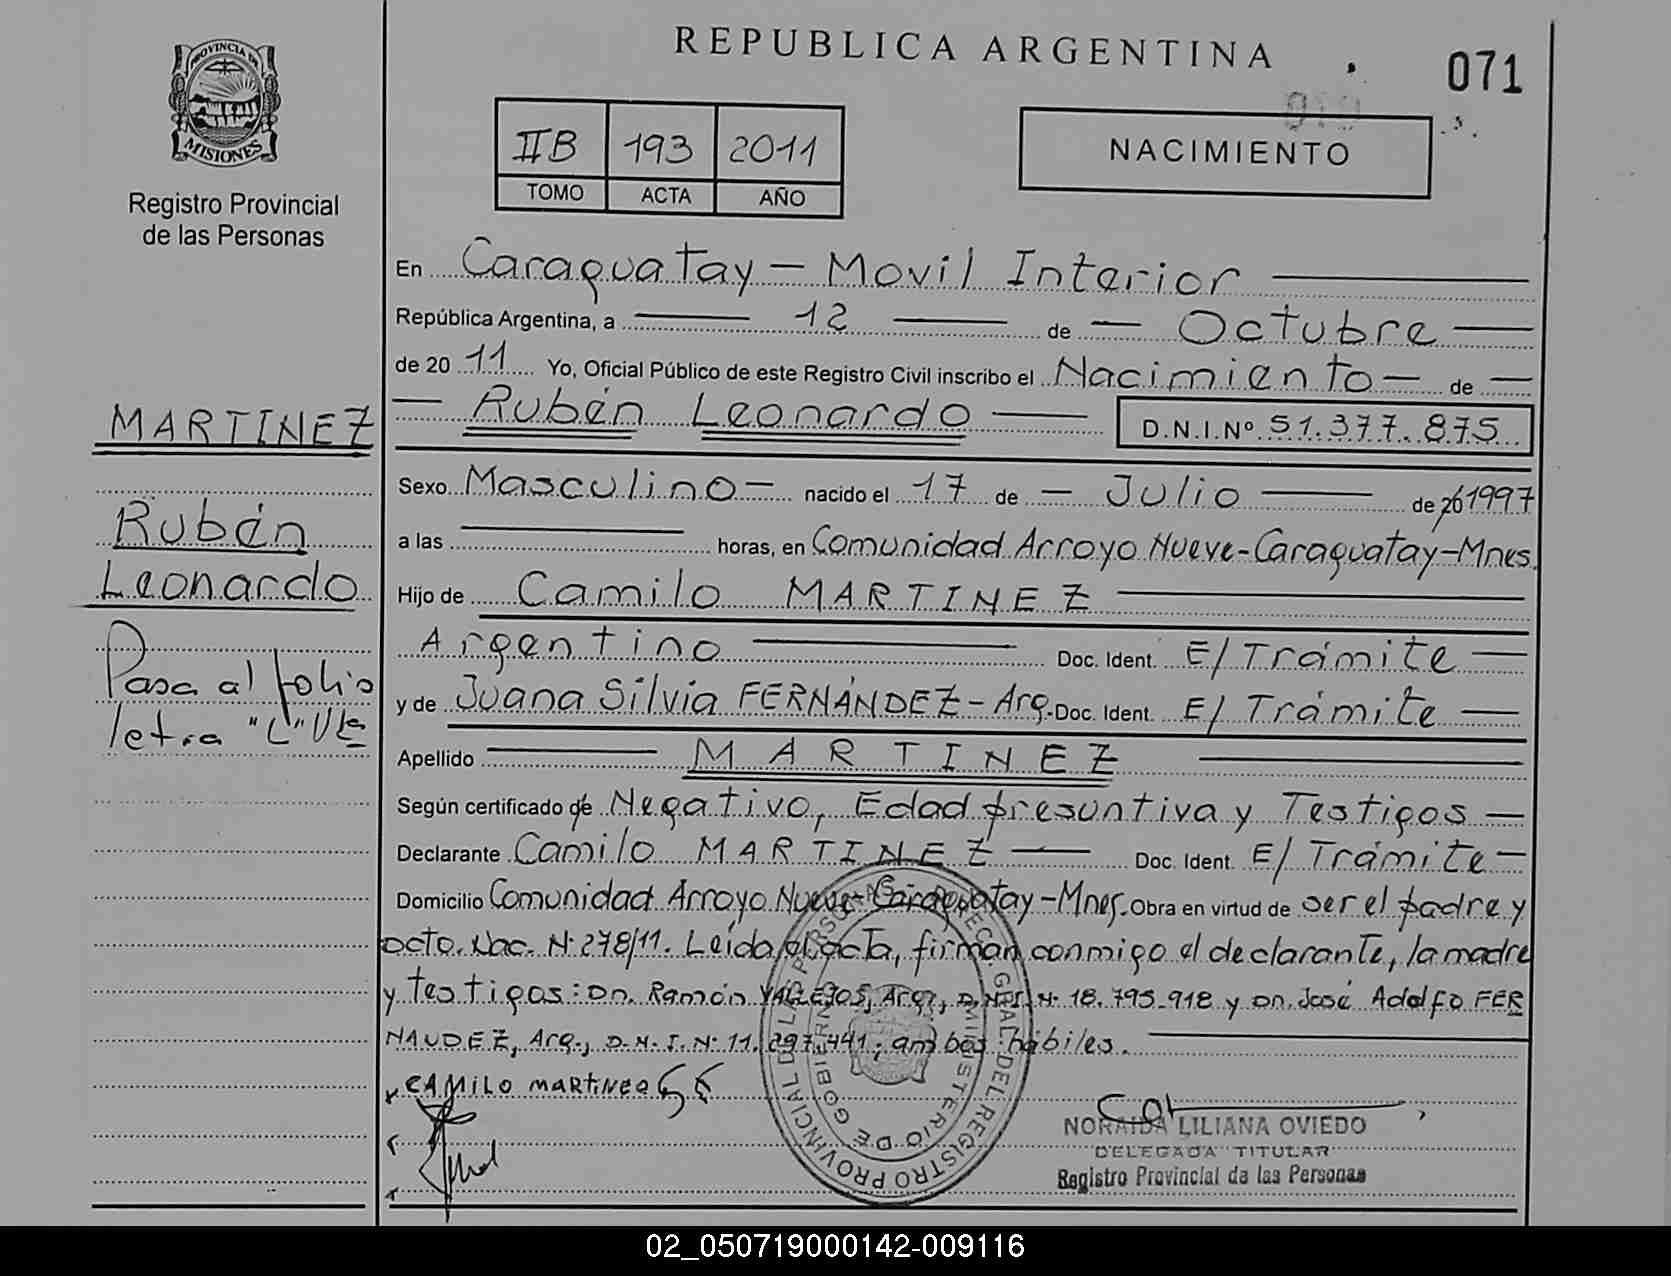 REPUBLICA ARGENTINA
071
PROVINCIA DE
MISIONES
Registro Provincial
de las Personas
IIB 193 2011
TOMO ACTA AÑO
NACIMIENTO
En Caraguatay - Movil Interior
República Argentina, a 12 de Octubre
de 20 11 Yo, Oficial Público de este Registro Civil inscribo el Nacimiento de
Rubén Leonardo D.N.I.Nº 51.377.875
MARTINEZ
Rubén
Leonardo
Pasa al folio
letra "L" Vta
Sexo Masculino nacido el 17 de Julio de 20 1997
a las horas, en Comunidad Arroyo Nueve-Caraguatay-Mnes.
Hijo de Camilo MARTINEZ
Argentino Doc. Ident. E/Trámite
y de Juana Silvia FERNÁNDEZ - Arg. Doc. Ident. E/Trámite
Apellido MARTINEZ
Según certificado de Negativo, Edad presuntiva y Testigos
Declarante Camilo MARTINEZ Doc. Ident. E/Trámite
Domicilio Comunidad Arroyo Nueve-Caraguatay-Mnes. Obra en virtud de ser el padre y
acto. Nac. Nº 278/11. Leída el acta, firman conmigo el declarante, la madre
y testigos: Dn. Ramón VALLEJOS, Arg., D.N.I. Nº 18.795.918 y Dn. José Adolfo FER
NANDEZ, Arg., D.N.I. Nº 11.297.441; ambos hábiles.
CAMILO MARTINEZ
NORAIDA LILIANA OVIEDO
DELEGADA TITULAR
Registro Provincial de las Personas
DIRECC. GRAL. DEL REGISTRO PROVINCIAL DE LAS PERSONAS
MINISTERIO DE GOBIERNO
02_050719000142-009116